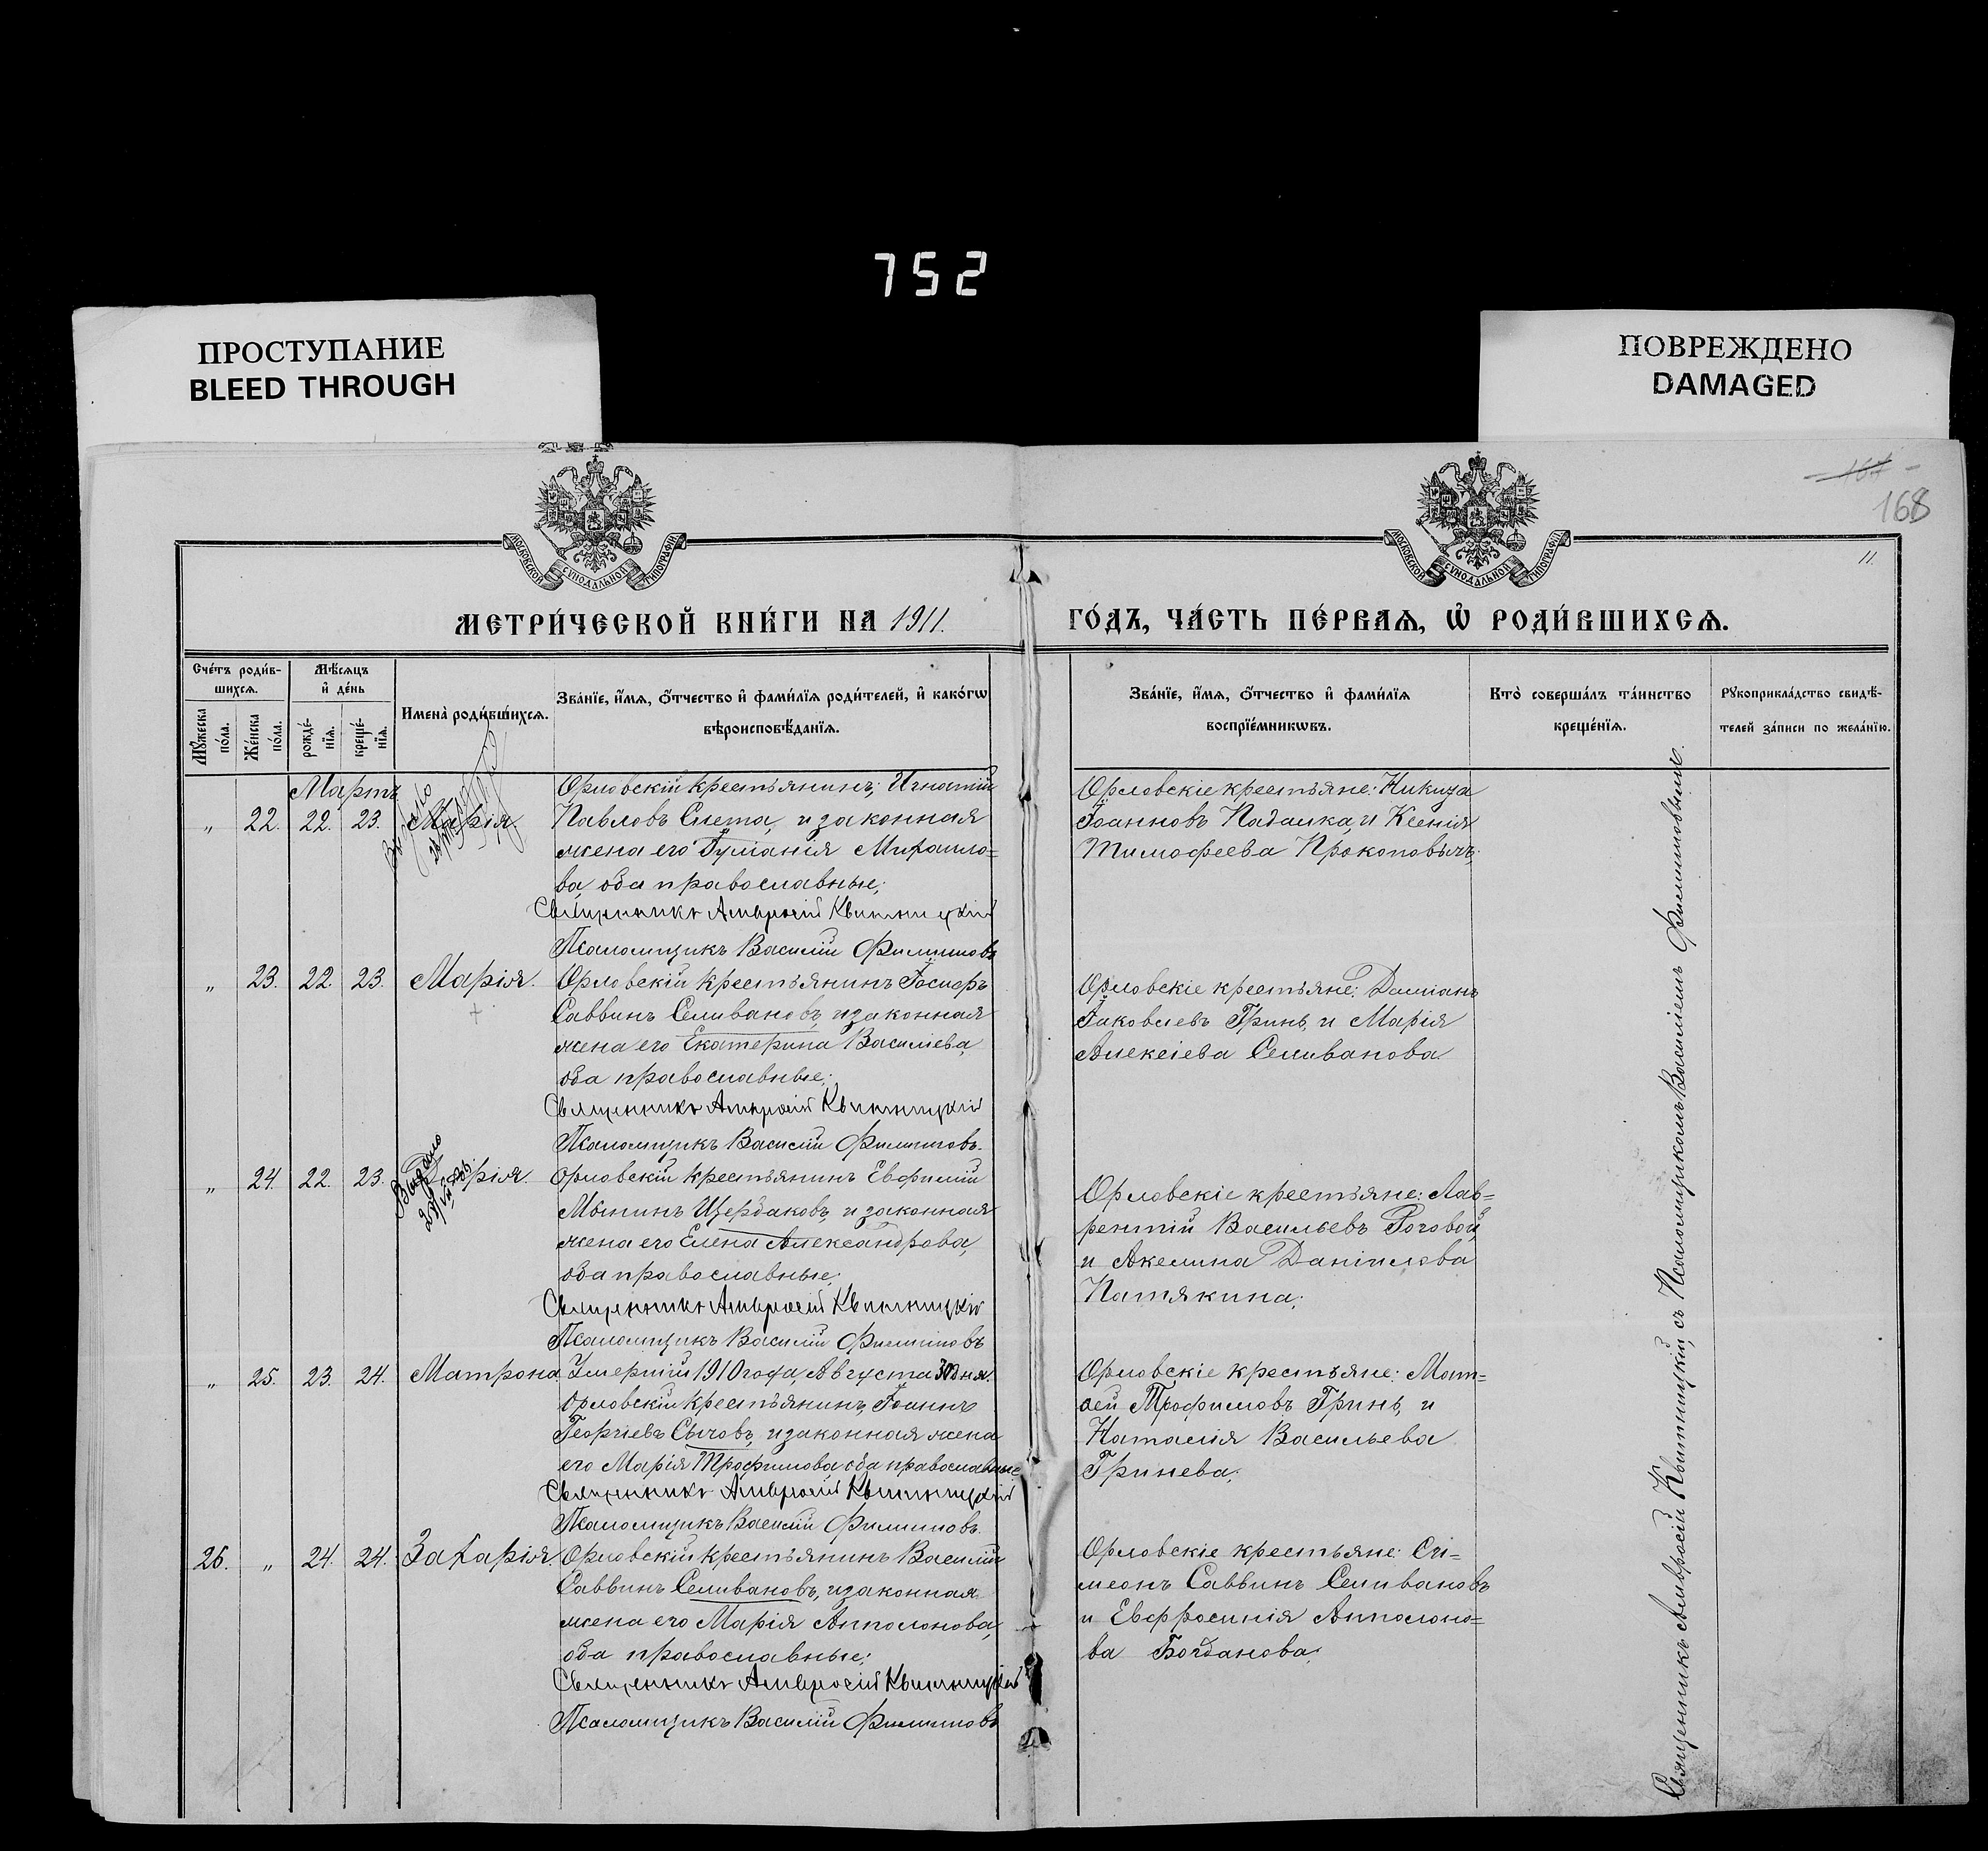 752
ПРОСТУПАНИЕ
BLEED THROUGH
ПОВРЕЖДЕНО
DAMAGED
168
11.
МОСКОВСКОЙ СѴНОДАЛЬНОЙ ТИПОГРАФІИ
МОСКОВСКОЙ СѴНОДАЛЬНОЙ ТИПОГРАФІИ
МЕТРИ́ЧЕСКОЙ КНИ́ГИ НА 1911. ГО́ДЪ, ЧА́СТЬ ПЕ́РВАѦ, Ѡ҆ РОДИ́ВШИХСѦ.
Сче́тъ роди́в-
шихсѧ.
Мꙋ́жеска
по́ла.
Же́нска
по́ла.
Мѣ́сѧцъ
и҆ де́нь
рожде́-
нїѧ.
креще́-
нїѧ.
Имена̀ роди́вшихсѧ.
Зва́нїе, и҆́мѧ, ѻ҆́тчество и҆ фами́лїѧ роди́телей, и҆ како́гѡ
вѣроисповѣ́данїѧ.
Зва́нїе, и҆́мѧ, ѻ҆́тчество и҆ фами́лїѧ
воспрїе́мникѡвъ.
Кто̀ соверша́лъ та́инство
креще́нїѧ.
Рꙋкоприкла́дство свидѣ́-
телей за́писи по жела́нїю.
Мартъ
„ 22. 22. 23. Марія.
Орловскій крестьянинъ, Игнатій
Павловъ Смета, и законная
жена его Михаило=
ва, оба православные;
Священникъ Амвросій Квитницкій
Псаломщикъ Василій Филиповъ
Орловскіе крестьяне: Никита
Іоанновъ Падалка, и Ксенія
Тимофеева
„ 23. 22. 23. Марія.
Орловскій крестьянинъ Іосифъ
Саввинъ Селивановъ, и законная
жена его Екатерина Василіева,
оба православные;
Священникъ Амвросій Квитницкій
Псаломщикъ Василій Филиповъ.
Орловскіе крестьяне: Даміанъ
Іаковлевъ Гринь, и Марія
Алексіева Селиванова
„ 24. 22. 23. Марія.
Выдано
Орловскій крестьянинъ Евфимій
Мининъ Щербаковъ, и законная
жена его Елена Александрова,
оба православные;
Священникъ Амвросій Квитницкій
Псаломщикъ Василій Филиповъ
Орловскіе крестьяне: Лав=
рентій Васильевъ Роговой,
и Акелина Даніилова
Патякина;
„ 25. 23. 24. Матрона.
Умершій 1910 года, Августа 30 дня.
Орловскій крестьянинъ, Іоаннъ
Георгіевъ Сычовъ, и законная жена
его Марія Трофимова оба православные
Священникъ Амвросій Квитницкій
Псаломщикъ Василій Филиповъ.
Орловскіе крестьяне: Мат=
ѳей Трофимовъ Гринь, и
Наталія Васильева
Гринева;
26. „ 24. 24. Захарія
Орловскій крестьянинъ Василій
Саввинъ Селивановъ, и законная
жена его Марія Апполонова,
оба православные;
Священникъ Амвросій Квитницкій
Псаломщикъ Василій Филиповъ
Орловскіе крестьяне: Сі=
меонъ Саввинъ Селивановъ
и Евфросинія Апполоно=
ва Богданова;
Священникъ Амвросій Квитницкій, съ Псаломщикомъ Василіемъ Филиповымъ.